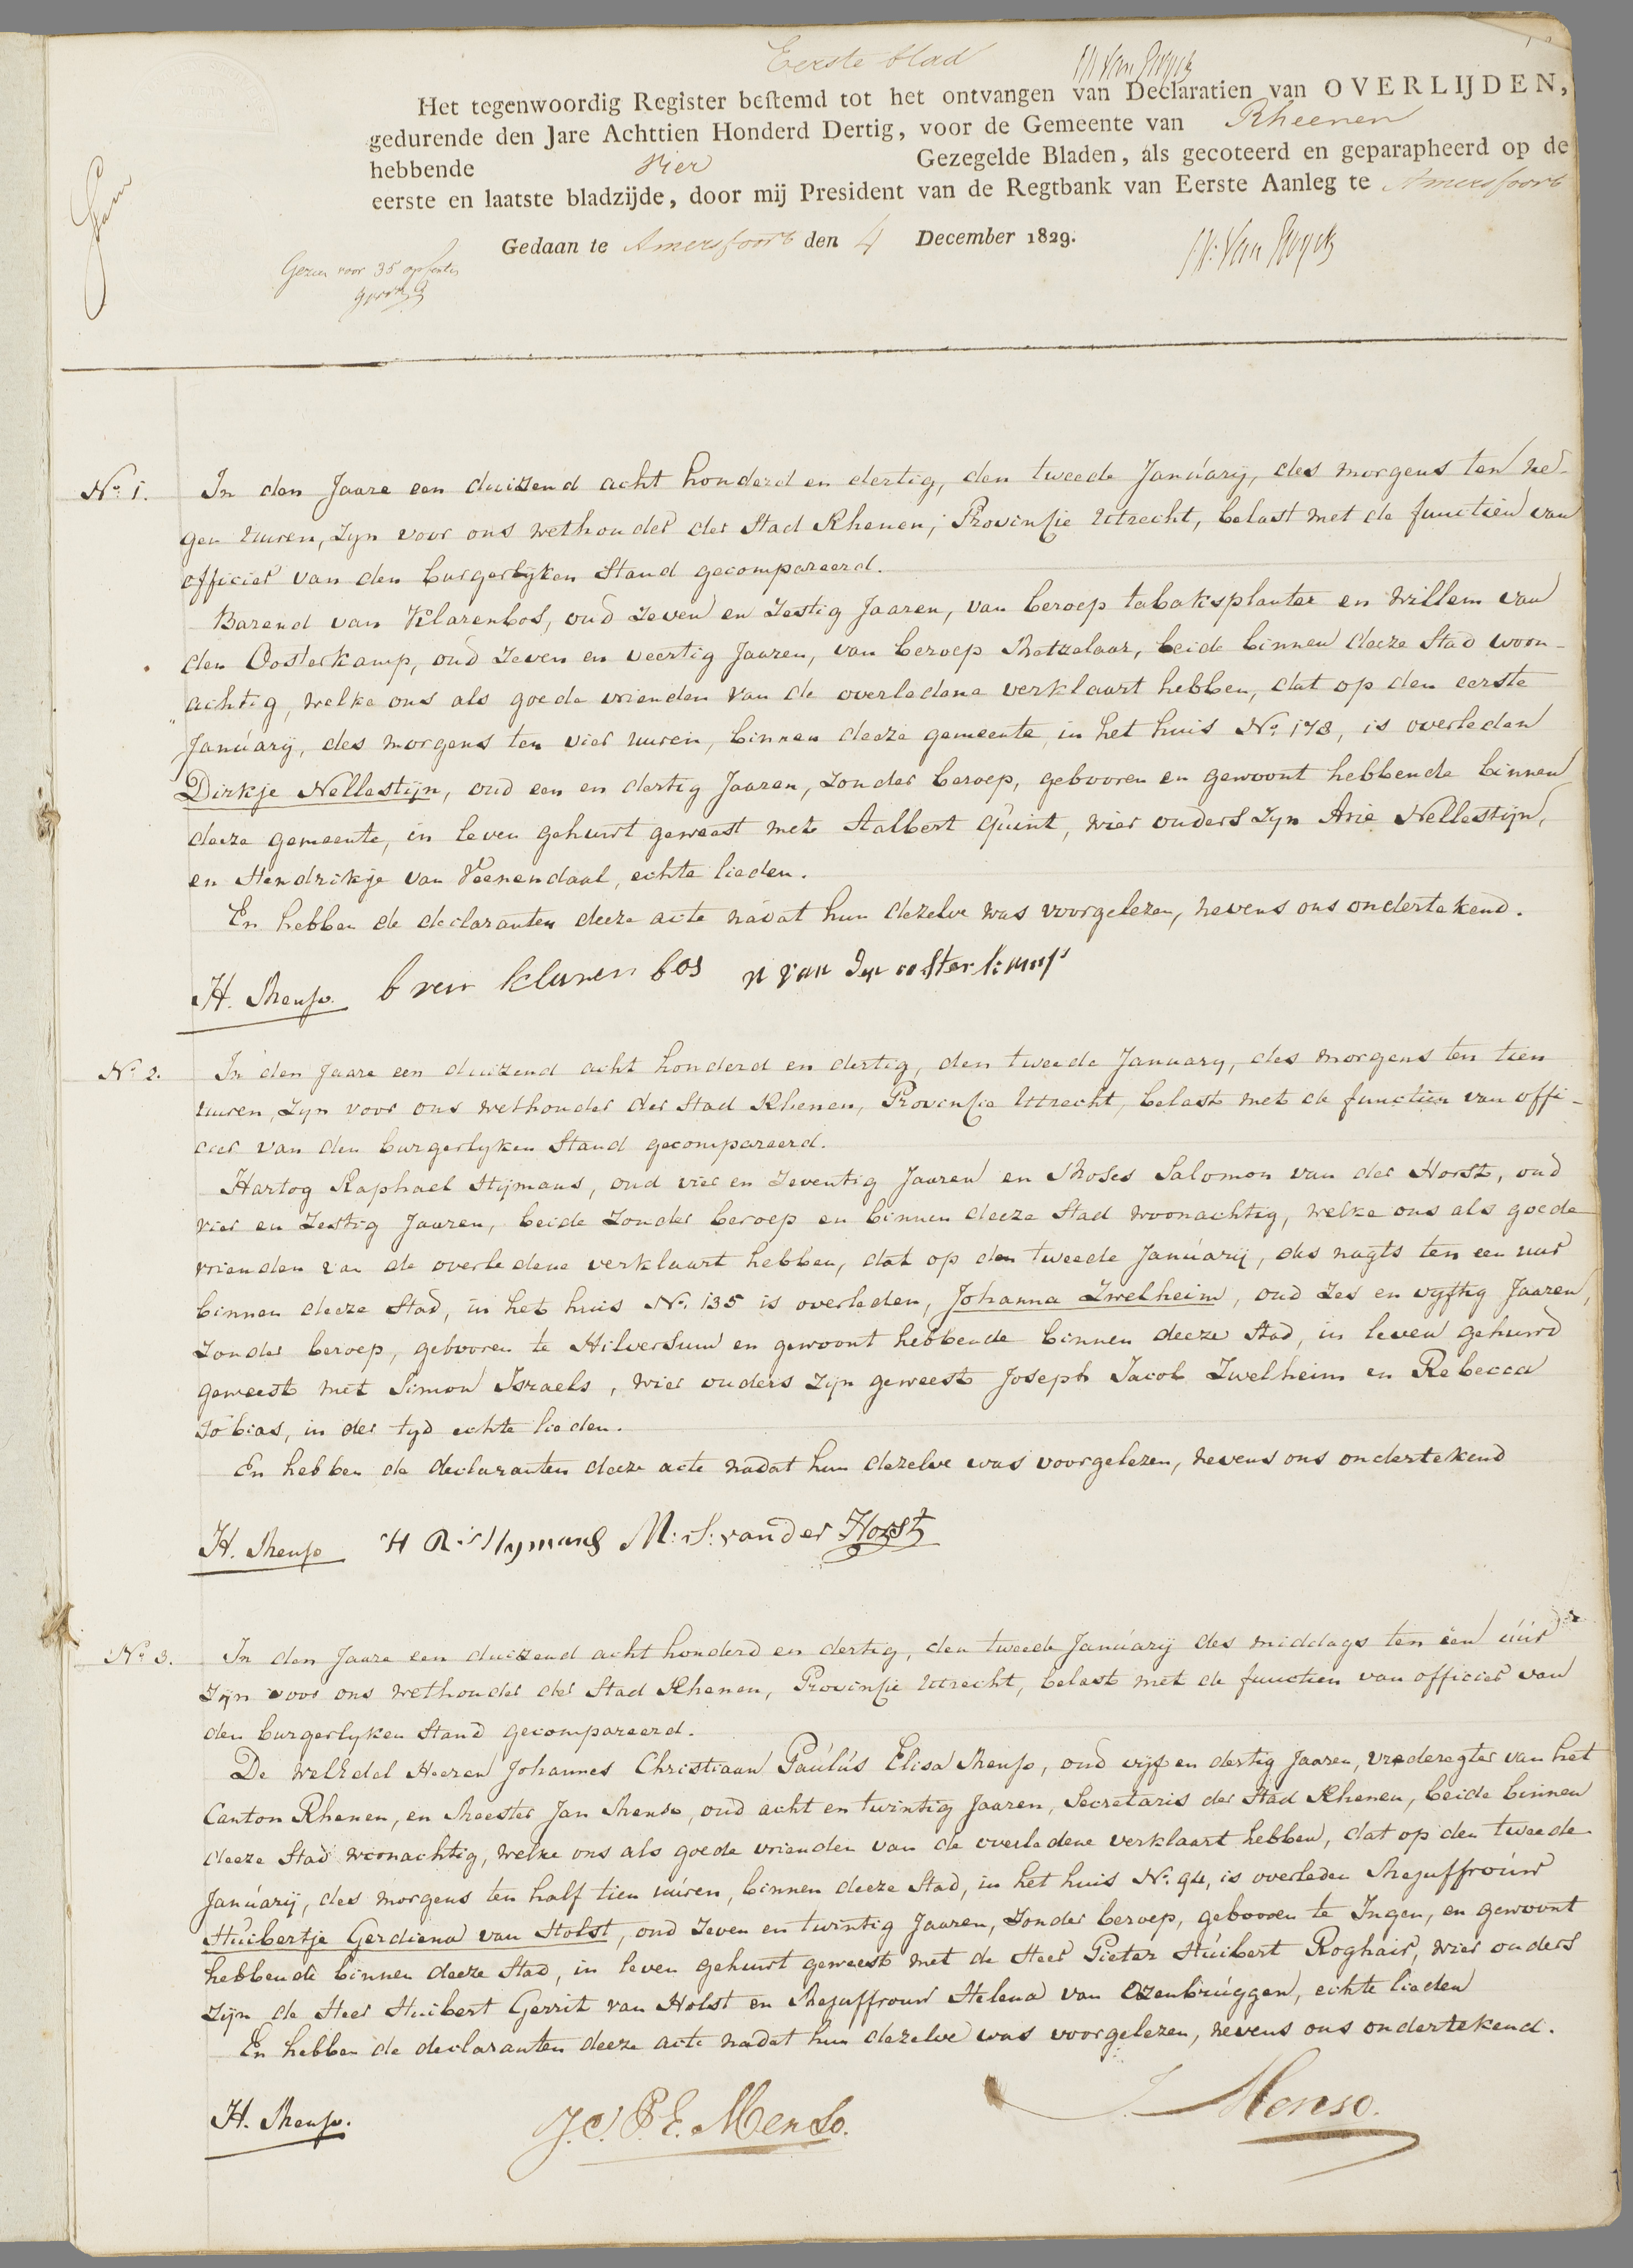 Eerste blad
Het tegenwoordig Register bestemd tot het ontvangen van Declaratien van OVERLIJDEN,
gedurende den Jare Achttien Honderd Dertig, voor de Gemeente van Rheenen
hebbende Vier Gezegelde Bladen, als gecoteerd en geparapheerd op de
eerste en laatste bladzijde, door mij President van de Regtbank van Eerste Aanleg te Amersfoort
Gedaan te Amersfoort den 4 December 1829.
Gezien voor 35
No. 1.
In den Jaare een duizend acht honderd en dertig, den tweede Januarij, des morgens ten ne-
gen uuren, Zyn voor ons wethouder der Stad Rhenen, Provinsie Utrecht, belast met de functien van
officier van den burgerlyken Stand gecompareerd.
Barend van Klarenbos, oud Zeven en Zestig Jaaren, van beroep tabaksplanter en Willem van
den Oosterkamp, oud Zeven en veertig Jaaren, van beroep Metzelaar, beide binnen deeze Stad woon-
achtig, welke ons als goede vrienden van de overledene verklaart hebben, dat op den eerste
Januarij, des morgens ten vier uuren, binnen deeze gemeente, in het huis No. 178, is overleden
Dirkje Nellestijn, oud een en dertig Jaaren, Zonder beroep, gebooren en gewoont hebbende binnen
deeze gemeente, in leven gehuwt geweest met Aalbert Quint, wier ouders Zyn Arie Nellestijn,
en Hendrikje van Veenendaal, echte lieden.
En hebben de declaranten deeze acte nadat hun dezelve was voorgelezen, nevens ons ondertekend.
H. Menso. b van klaren bos w van den oosterkamp
No. 2.
In den Jaare een duizend acht honderd en dertig, den tweede January, des morgens ten tien
uuren, Zyn voor ons wethouder der Stad Rhenen, Provinsie Utrecht, belast met de functien van offi-
cier van den burgerlyken Stand gecompareerd.
Hartog Raphael Hijmans, oud vier en Zeventig Jaaren en Moses Salomon van der Horst, oud
vier en Zestig Jaaren, beide Zonder beroep en binnen deeze Stad woonachtig, welke ons als goede
vrienden van de overledene verklaart hebben, dat op den tweede Januarij, des nagts ten een uur
binnen deeze Stad, in het huis No. 135 is overleden, Johanna Zwelheim, oud Zes en vyftig Jaaren,
Zonder beroep, gebooren te Hilversum en gewoont hebbende binnen deeze Stad, in leven gehuwd
geweest met Simon Israels, wier ouders Zijn geweest Joseph Jacob Zwelheim en Rebecca
Tobias, in der tyd echte lieden.
En hebben de declaranten deeze acte nadat hun dezelve was voorgelezen, nevens ons ondertekend
H. Menso H R Hymans M: S: van der Horst
No. 3.
In den Jaare een duizend acht honderd en dertig, den tweede Januarij des middags ten één uur
Zijn voor ons wethouder der Stad Rhenen, Provinsie Utrecht, belast met de functien van officier van
den burgerlyken Stand gecompareerd.
De WelEdel Heeren Johannes Christiaan Paulus Elisa Menso, oud vijf en dertig Jaaren, vrederegter van het
Canton Rhenen, en Meester Jan Menso, oud acht en twintig Jaaren, Secretaris der Stad Rhenen, beide binnen
deeze Stad woonachtig, welke ons als goede vrienden van de overledene verklaart hebben, dat op den tweede
Januarij, des morgens ten half tien uuren, binnen deeze Stad, in het huis No. 94, is overleden Mejuffrouw
Huibertje Gerdiena van Holst, oud Zeven en twintig Jaaren, Zonder beroep, gebooren te Ingen, en gewoont
hebbende binnen deeze Stad, in leven gehuwt geweest met de Heer Pieter Huibert Roghair, wier ouders
Zijn de Heer Huibert Gerrit van Holst en Mejuffrouw Helena van Ozenbruggen, echte lieden
En hebben de declaranten deeze acte nadat hun dezelve was voorgelezen, nevens ons ondertekend.
H. Menso. J. C. P. E. Menso. J. Menso.